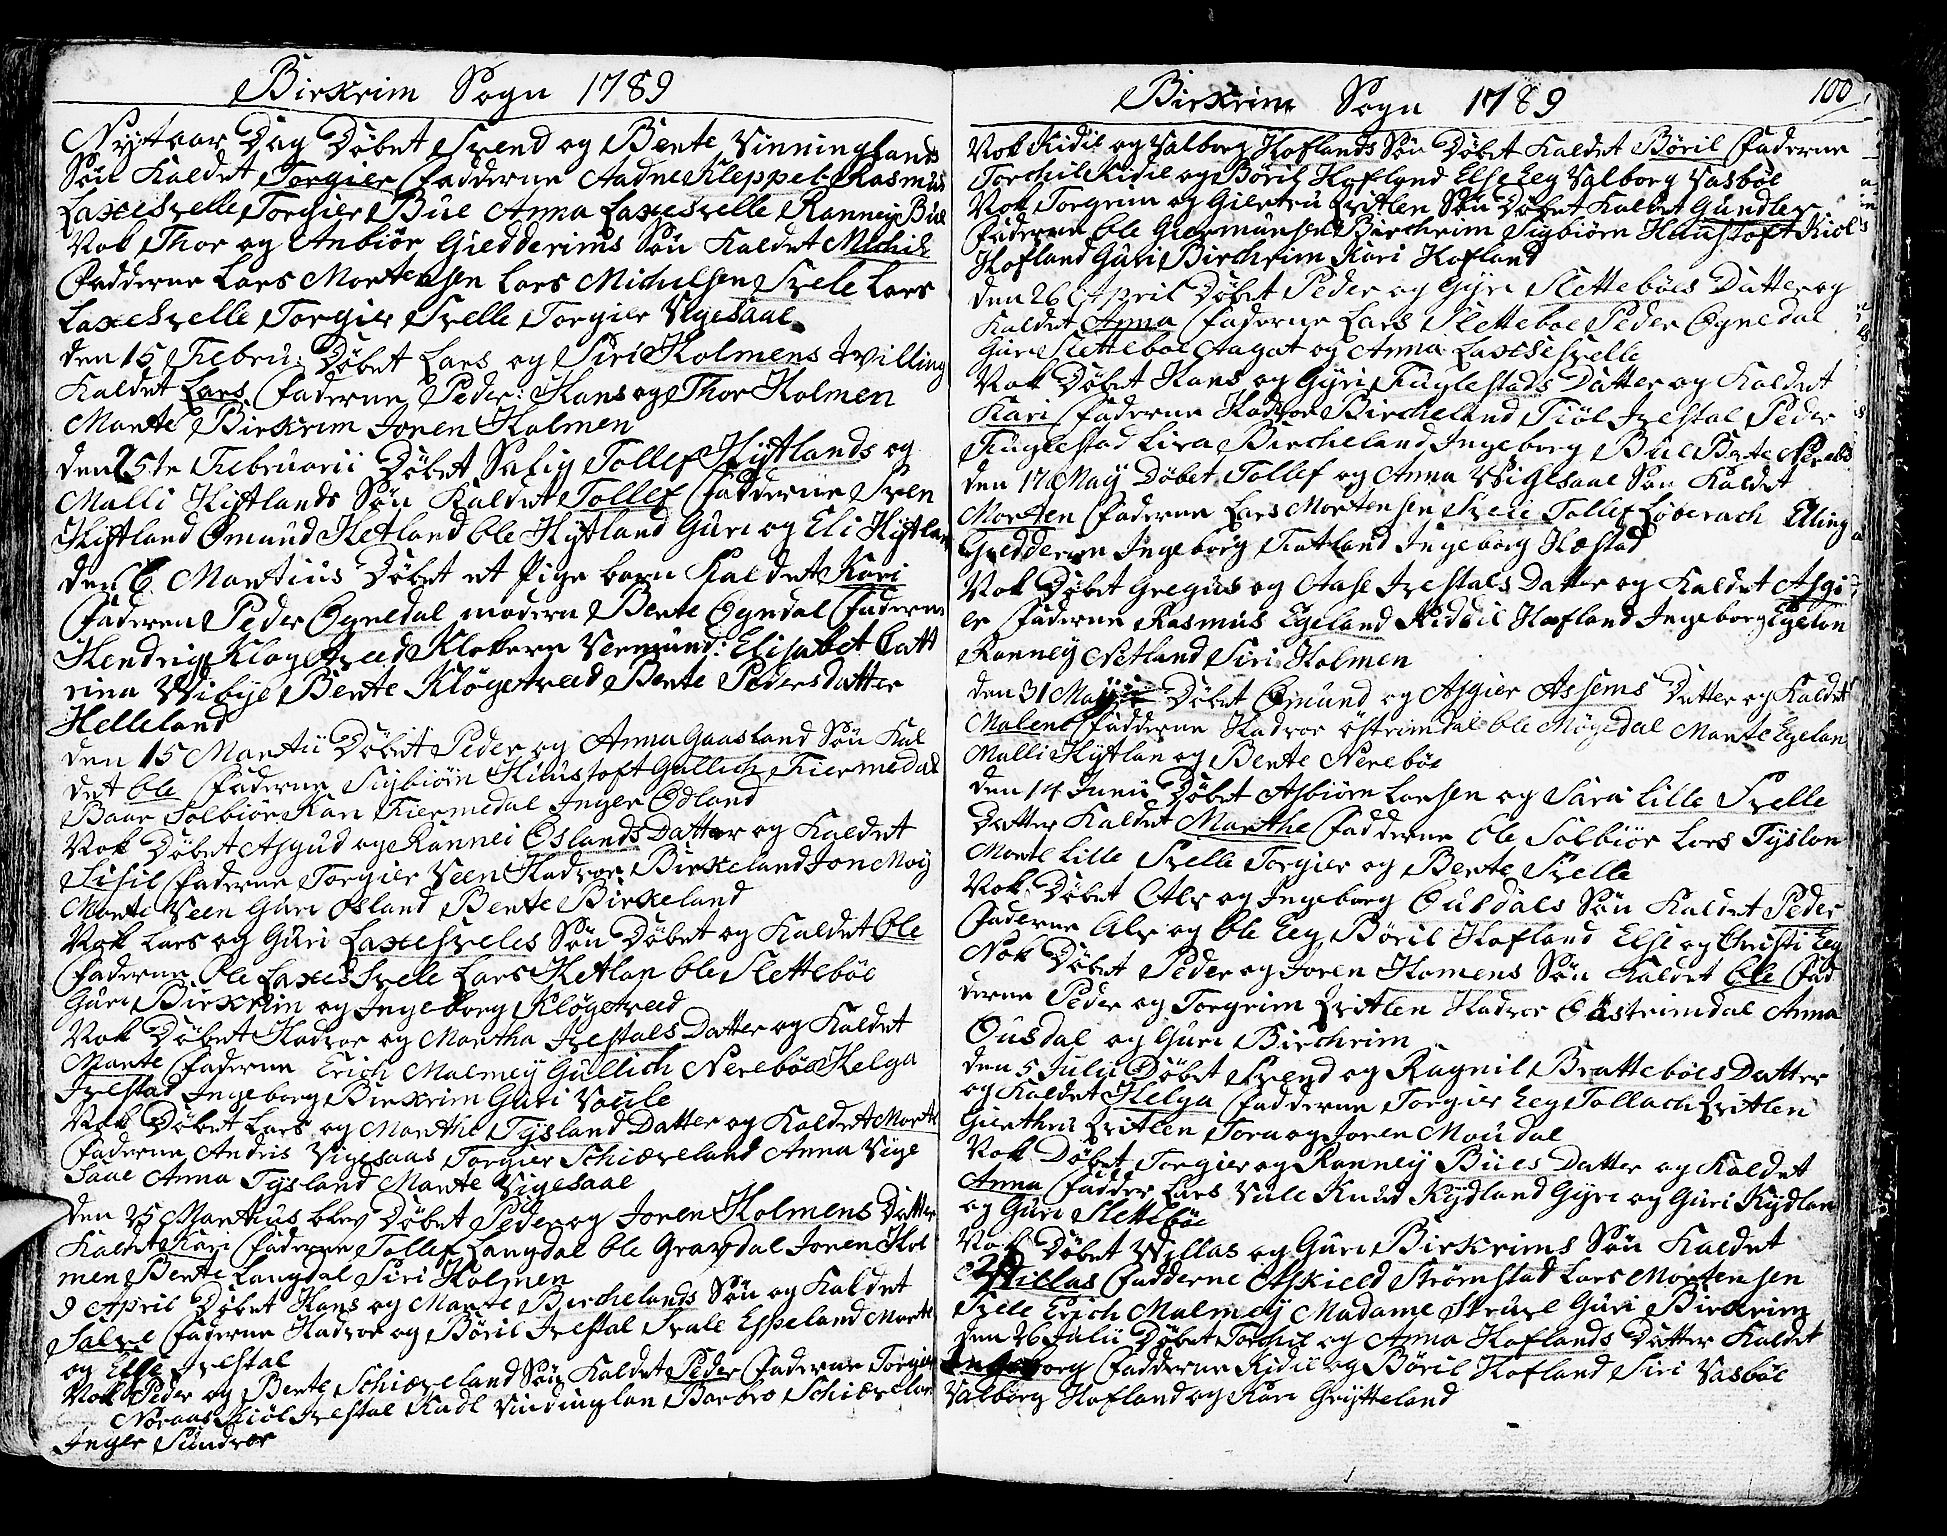 Birkrim Sogn 1789
Nytaar Dag Döbet Svend og Bente Vinninglands
Sön Kaldet Torgier Fadderne Aadne Kleppel: Rasmus
Laxesvelle Torgier Bue Anna Laxesvelle Ranney Bue
Nok Thor og Anbiör Giedderims Sön Kaldet Michil
Fadderne Lars Mortensen Lars Michilsen Svele Lars
Laxesvelle Torgier Svelle Torgier Vigesaae
den 15 Febru: Döbet Lars og Siri Holmens tvilling
Kaldet Lars Faderne Peder: Hans og Thor Holmen
Marte Birkrim Joren Holmen
den 25te Februarii Döbet Salig Tollef Hytlands og
Malli Hytlands Sön Kaldet Tollef Fadderne Sven
Hytland Omund Hetland Ole Hytland Guri og Eli Hytlan
den 6 Martius Döbet et Pige barn Kaldet Kari
Faderen Peder Ognedal modern Bente Ogndal Faderne
Hendrig Klogetveed Klokern Vermund: Elisabet Catt
rina Wibye Bente Klögetveed Bente Pedersdatter
Helleland
den 15 Martii Döbet Peder og Anna Gaasland Sön Kal
det Ole Faderne Sigbiörn Huustoft Gullich Fiermedal
Baar Solbiör Kari Fiermedal Inger Odland
Nok Döbet Asgud og Rannei Oslands Datter og Kaldet
Sisil Faderne Torgier Veen Hadvor Birkeland Jon Moy
Marte Veen Guri Osland Bente Birkeland
Nok Lars og Guri Laxesveles Sön Döbet og Kaldet Ole
Faderne Ole Laxesvele Lars Hetlan Ole Sletteböe
Guri Birkrim og Ingeborg Klögetveed
Nok Döbet Hadvor og Martha Ivestals Datter og Kaldet
Marte Faderne Erich Malmey Gullich Nereböe Helga
Ivestad Ingeborg Birkrim Guri Vaule
Nok Döbet Lars og Marthe Tysland Datter og Kaldet Marte
Faderne Andris Vigesaas Torgier Schiæveland Anna Vige
saae Anna Tysland Marte Vigesaae
den 25 Martius blev Döbet Peter og Joren Holmens Datter
Kaldet Kari Faderne Tollef Langdal Ole Gravdal Joren Hol
men Bente Langdal Siri Holmen
9 April Döbet Hans og Marte Birchelands Sön og Kaldet
Salve Faderne Hadvor og Böril Ivestal Svale Espeland Marte
og Else Ivestal
Nok Peder og Bente Schiæveland Sön Kaldet Peder Faderne Torgier
Noraas Kiöl Ivestal Kadl Vindinglan Barbro Schiævelan
Inger Sundvor
Birkrim Sogn 1789 100
Nok Kidil og Valborg Hoflands Sön Döbet Kaldet Böril Faderne
Torchil Kidil og Böril Hofland Else Eeg Valborg Vasböe
Nok Torgrim og Giertru Qvitlen Sön Döbet Kaldet Gundler
Faderne Ole Giermunsen Bircheim Sigbiörn Huustoft Kidl
Hofland Guri Birchrim Kari Hofland
den 26 April Döbet Peder og Gyri Sletteböes Datter og
Kaldet Anna Faderne Lars Sletteboe Peder Ognedal
Guri Sletteboe Aagat og Anna Laxsesvelle
Nok Döbet Hans og Gyri Fuglestads Datter og Kaldet
Kari Faderne Hadvor Bircheland Fiöl Ivestal Peder
Fuglestad Liva Bircheland Ingeborg Bue Bente Nereböe
den 17 May Döbet Tollef og Anna Vigesaae Sön Kaldet
Morten Faderne Lars Mortensen Svele Tollef Löverach Elling
Giedderim Ingeborg Fatland Ingeborg Hæstad
Nok Döbet Gregus og Aase Ivestals Datter og Kaldet Asgi
er Faderne Rasmus Egeland Kiddil Hofland Ingeborg Egelan
Ranney Netland Siri Holmen
den 31 May Döbet Omund og Asgier Assems Datter og Kaldet
Malene Fadderne Hadvor östrimdal Ole Mögedal Marte Egelan
Malli Hytlan og Bente Nereböe
den 14 Junii Döbet Asbiörn Larsen og Sara lille Svelle
Datter Kaldet Marthe Fadderne Ole Solbiör Lars Tyslan
Marte Lille Svelle Torgier og Bente Svelle
Nok Döbet Alv og Ingeborg Ousdals Sön Kaldet Peder
Faderne Alv og Ole Eeg Böril Hofland Else og Christi Eeg
Nok Döbet Peder og Joren Homens Sön Kaldet Ole Fad
derne Peder og Torgrim Qvitlen Hadvor Östrimdal Anna
Ousdal og Guri Birchrim
den 5 Julii Döbet Svend og Ragnil Bratteböes Datter
og Kaldet Helga Fadderne Torgier Eeg Tollach Qvitlen
Gierthru Qvitlen Tora og Joren Moudal
Nok Döbet Torgier og Ranney Bues Datter og Kaldet
Anna Fadder Lars Vule Knud Kydland Gyri og Guri Kydlan
og Guri Slettböe
Nok Döbet Willas og Guri Birkrims Sön Kaldet
Willas Fadderne Askield Strömstad Lars Mortensen
Svele Erich Malmey Madame Skruve Guri Birkrim
den 26 Julii Döbet Torchil og Anna Hoflands Datter Kaldet
Ingeborg Fadderne Kidil og Böril Hofland Siri Vasböe
Valborg Hofland og Kari Grytteland